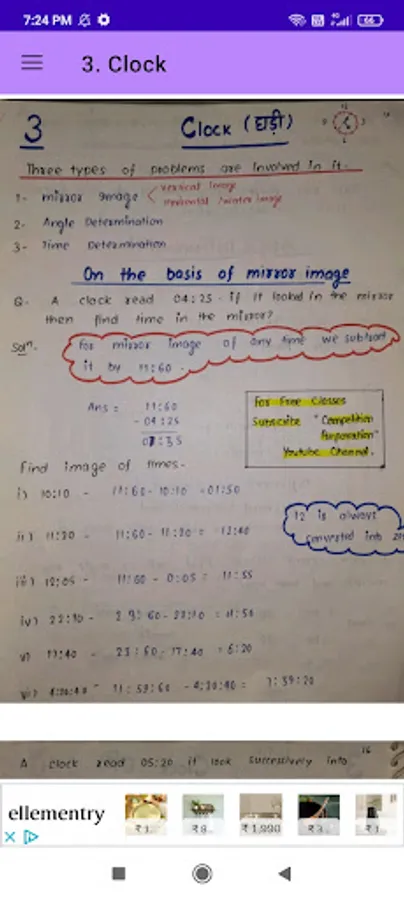 7:24 PM
66
3. Clock
3
Clock (घड़ी)
Three types of problems are involved in it.
1- mirror image < vertical image
Horizontal / water image
2- Angle Determination
3- Time Determination
On the basis of mirror image
Q- A clock read 04:25. if it looked in the mirror
then find time in the mirror?
Solⁿ. For mirror image of any time we subtract
it by 11:60.
Ans = 11:60
- 04:25
07:35
For Free Classes
Subscribe "Competition
Preparation"
Youtube Channel.
find image of times-
i) 10:10 - 11:60 - 10:10 = 01:50
12 is always
converted into
ii) 11:20 - 11:60 - 11:20 = 12:40
iii) 12:05 - 11:60 - 0:05 = 11:55
iv) 22:10 - 23:60 - 22:10 =
v) 17:40 - 23:60 - 17:40 = 6:20
vi) 4:20:40 - 11:59:60 - 4:20:40 = 7:39:20
A clock read 05:20 if look successively into
ellementry
₹1,990